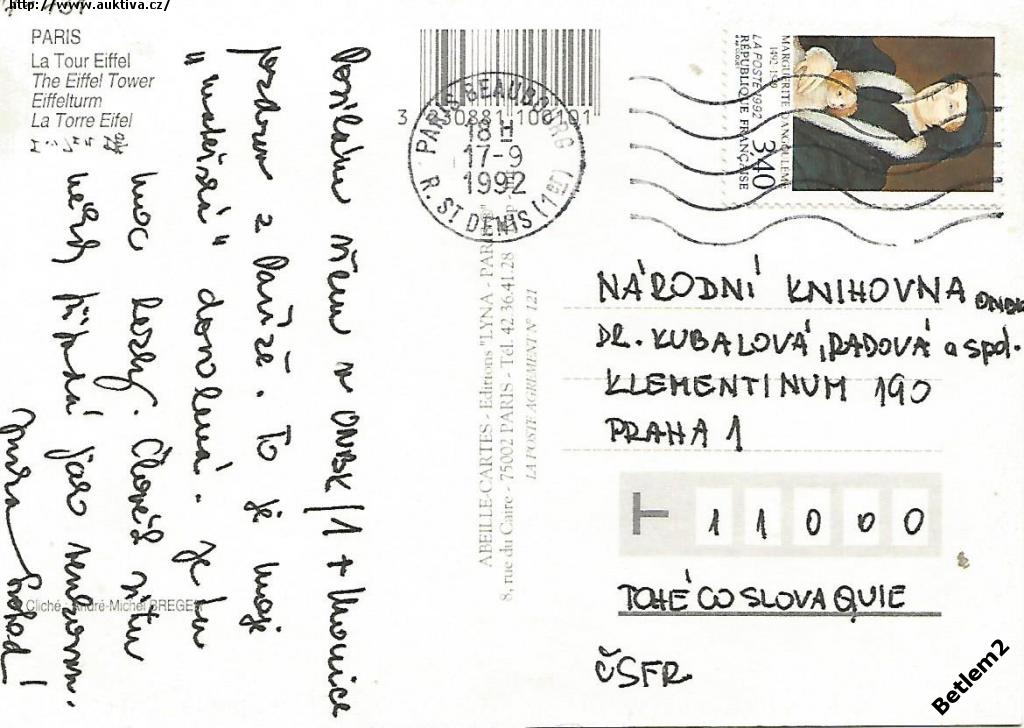 http://www.auktiva.cz/
PARIS
La Tour Eiffel
The Eiffel Tower
Eiffelturm
La Torre Eifel
Posílám všem v ONBK/1 + Monice
pozdrav z Paříže. To je moje
"mateřská" dovolená. Je tu
moc hezky. Člověk si tu
někdy připadá jako
Cliché : André-Michel BREGER
3 230881 100101
PARIS BEAUBOURG
18 H
17-9
1992
R. ST DENIS (1er)
ABEILLE-CARTES - Editions "LYNA - PARIS"
8, rue du Caire - 75002 PARIS - Tél. 42.36.41.28
LA POSTE AGREMENT N° 121
MARGUERITE D'ANGOULEME
1492-1549
LA POSTE 1992
RÉPUBLIQUE FRANÇAISE
3,40
NÁRODNÍ KNIHOVNA
DR. KUBALOVÁ, RADOVÁ a spol.
KLEMENTINUM 190
PRAHA 1
11000
TCHÉCOSLOVAQUIE
ČSFR
Betlem2